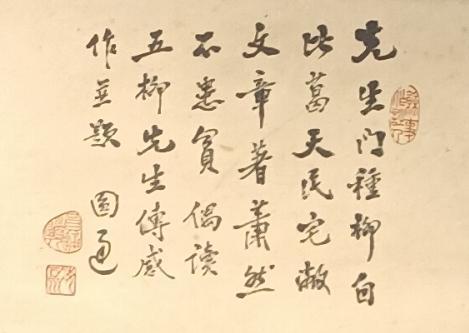 先生門種柳自
比葛天民宅敝
文章著蕭然
不患貧偶讀
五柳先生傳感
作並題 圓通